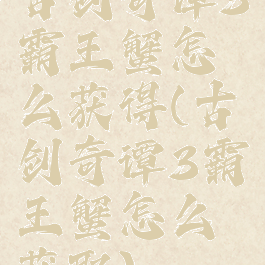 古剑奇谭3
霸王蟹怎
么获得(古
剑奇谭3霸
王蟹怎么
获取)